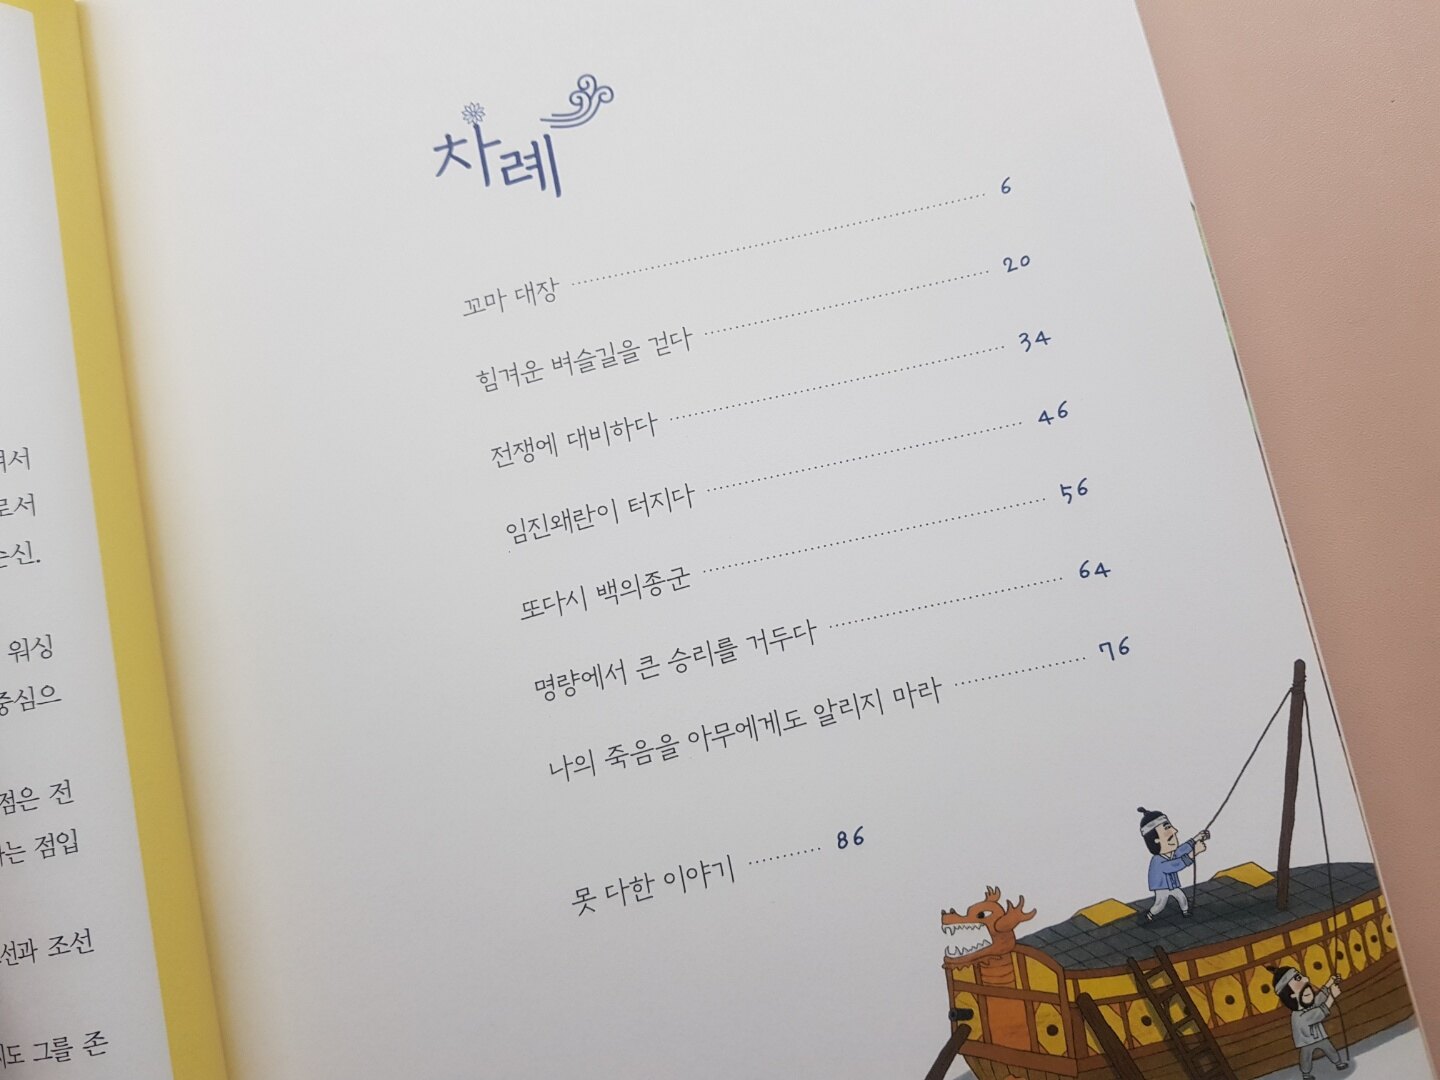 워싱
점은 전
는 점입
선과 조선
도 그를 존
차례
꼬마 대장 6
힘겨운 벼슬길을 걷다 20
전쟁에 대비하다 34
임진왜란이 터지다 46
또다시 백의종군 56
명량에서 큰 승리를 거두다 64
나의 죽음을 아무에게도 알리지 마라 76
못 다한 이야기 86